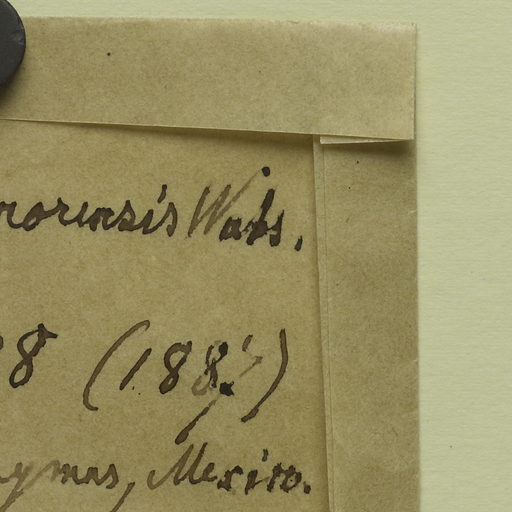 norensis Wats.
8 (1887)
ymas, Mexico.